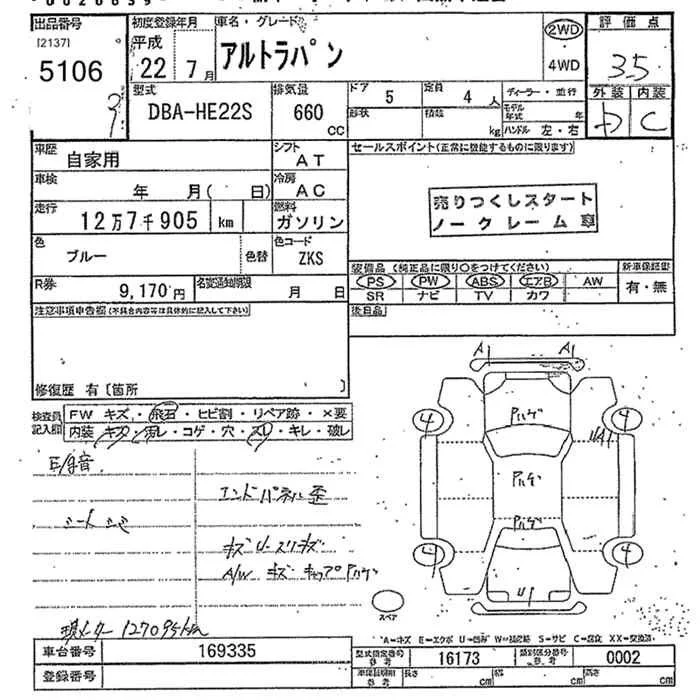 出品番号 初度登録年月 車名・グレード 2WD 評価点
[2137] 平成 アルトラパン
5106 22年 7月 4WD 3.5
型式 排気量 ドア 5 定員 4人 ディーラー・並行 外装 内装
DBA-HE22S 660 形状 積載 モデル年式 年 D C
CC kg ハンドル 左・右
車歴 自家用 シフト AT セールスポイント(正常に機能するものに限ります)
車検 年 月( 日) 冷房 AC
走行 12万7千905 km 燃料 ガソリン
売りつくしスタート
ノークレーム車
色 ブルー 色替 色コード ZKS
装備品 (純正品に限り○をつけてください) 新車保証書
PS PW ABS エアB AW 有・無
SR ナビ TV カワ
R券 9,170円 名変通知期限 月 日
注意事項申告欄(不具合内容等は具体的に記入して下さい) 後日品
修復歴 有〔箇所 〕
検査員記入欄 FW キズ・飛石・ヒビ割・リペア跡・×要
内装 キズ・汚レ・コゲ・穴・スレ・キレ・破レ
A1 A1
4 4
ハゲ
UA1
エンドパネル歪
ハゲ
シートシミ
ハゲ
4 4
U1
A/W キズ キャップハゲ
スペア
現メーター 127095km
A=キズ E=エクボ U=凹み W=補修跡 S=サビ C=腐食 XX=交換済
車台番号 169335 型式指定番号 参考 16173 類別区分番号 参考 0002
登録番号 車庫証明用 参考 長さ cm 幅 cm 高さ cm